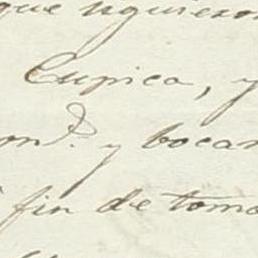 que siguieron
Cupica, y
y bocan
fin de toma